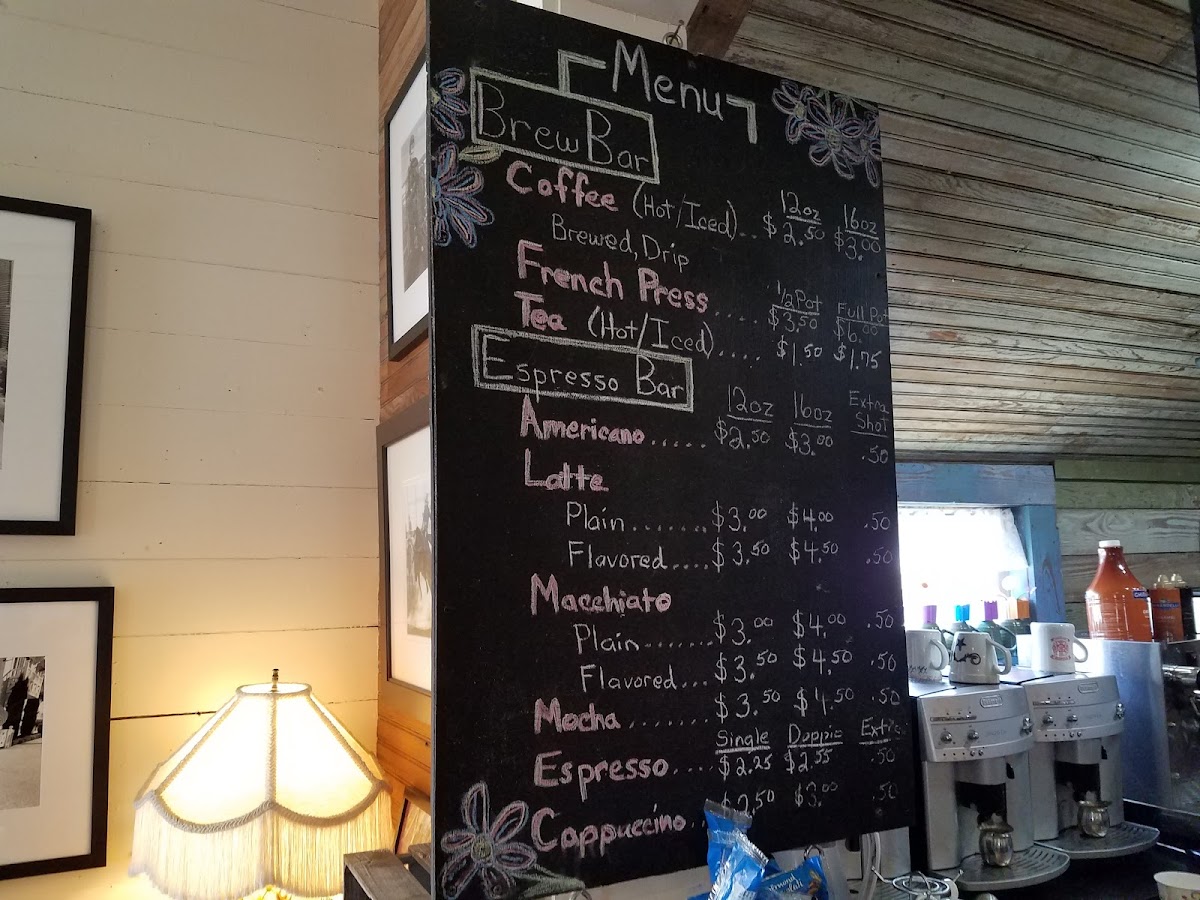 Menu
Brew Bar
12oz 16oz
Coffee (Hot/Iced).. $2.50 $3.00
Brewed, Drip
1/2 Pot Full Pot
French Press..... $3.50 $6.00
Tea (Hot/Iced)..... $1.50 $1.75
Espresso Bar
12oz 16oz Extra Shot
Americano...... $2.50 $3.00 .50
Latte
Plain....... $3.00 $4.00 .50
Flavored.... $3.50 $4.50 .50
Macchiato
Plain....... $3.00 $4.00 .50
Flavored... $3.50 $4.50 .50
Mocha........ $3.50 $4.50 .50
Single Doppio Extra
Espresso.... $2.25 $2.55 .50
Cappuccino.. 2.50 $3.00 .50